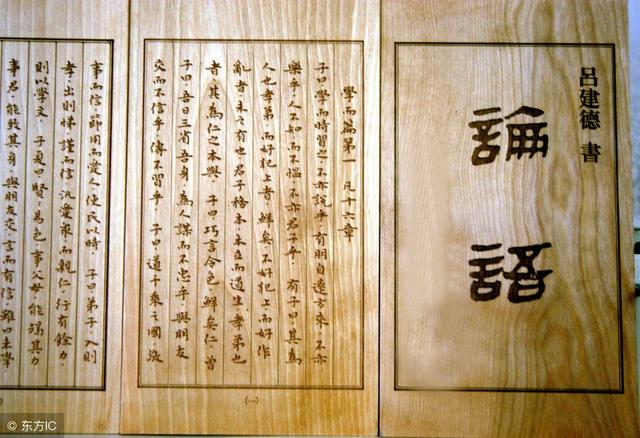 呂建德 書
論語
學而篇第一 凡十六章
子曰學而時習之不亦說乎有朋自遠方來不亦
樂乎人不知而不慍不亦君子乎 有子曰其為
人也孝弟而好犯上者鮮矣不好犯上而好作
亂者未之有也君子務本本立而道生孝弟也
者其為仁之本與 子曰巧言令色鮮矣仁 曾
子曰吾日三省吾身為人謀而不忠乎與朋友
交而不信乎傳不習乎 子曰道千乘之國敬
(一)
事而信節用而愛人使民以時 子曰弟子入則
孝出則悌謹而信汎愛眾而親仁行有餘力
則以學文 子夏曰賢々易色事父母能竭其力
事君能致其身與朋友交言而有信雖曰未學
© 东方IC